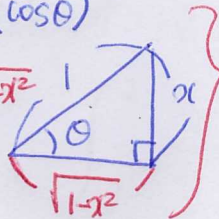 cosθ)
-x²
1
x
θ
√1-x²